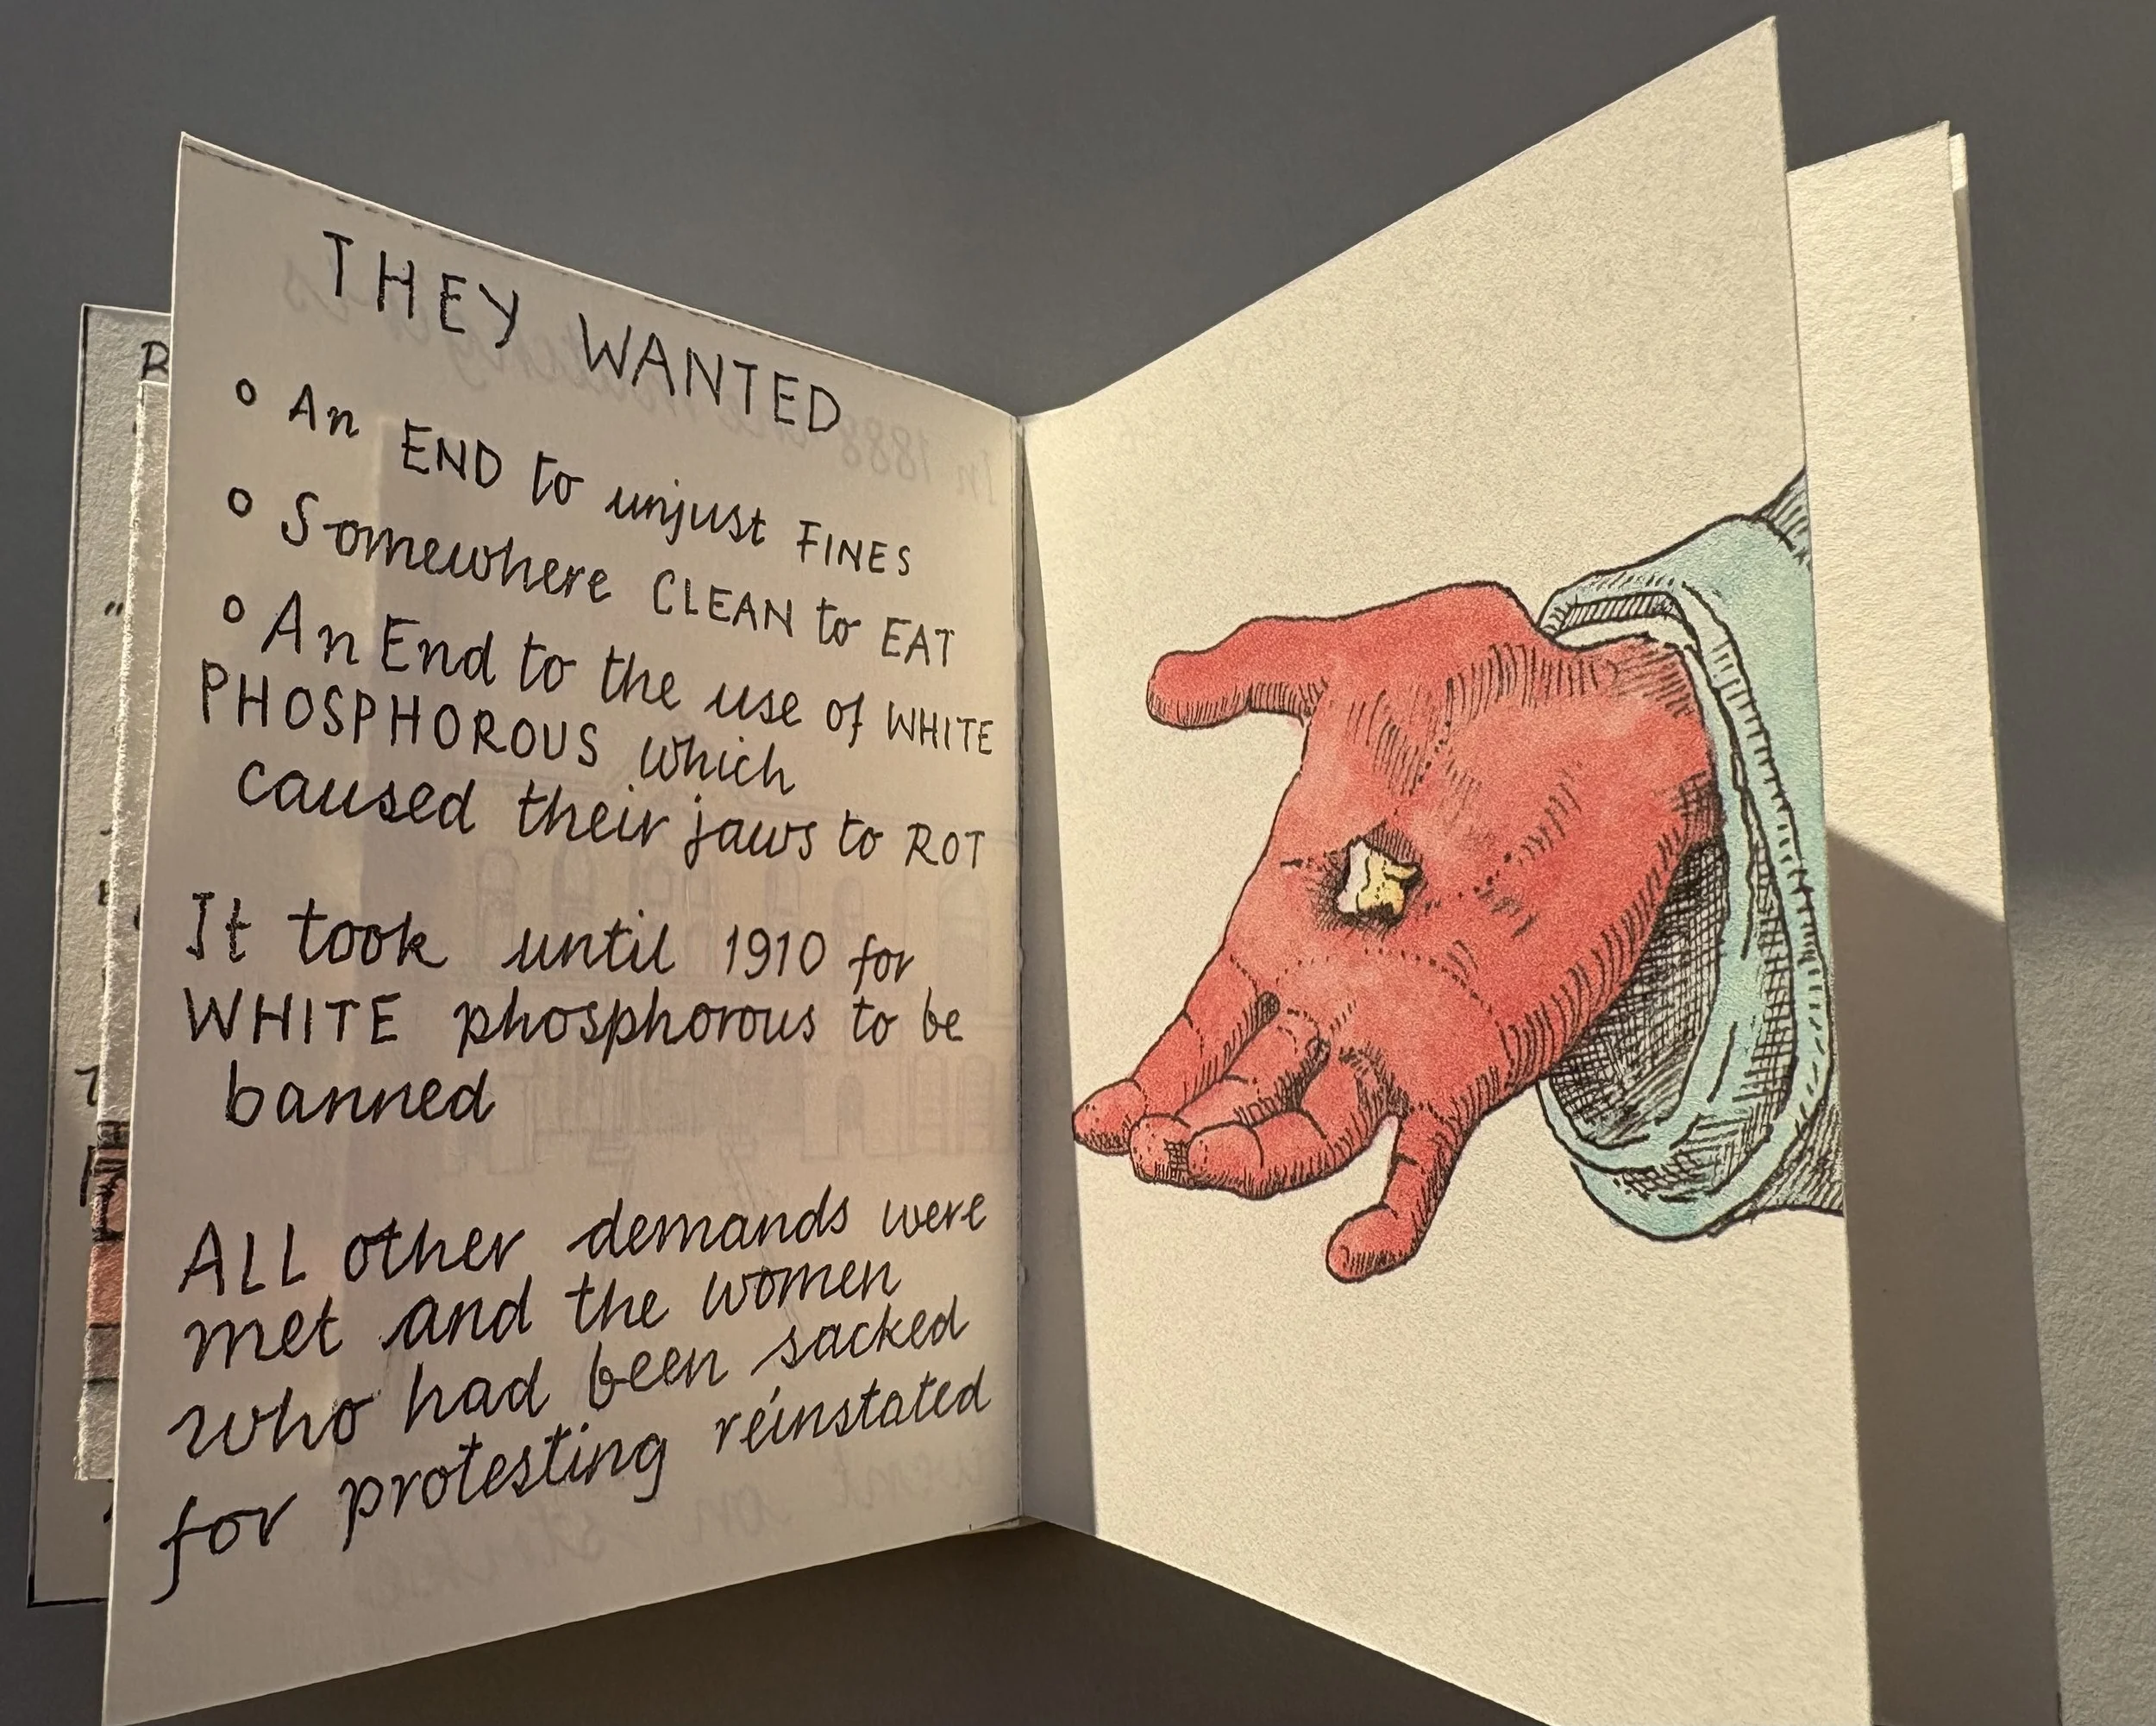 THEY WANTED
o An END to unjust FINES
o Somewhere CLEAN to EAT
o An End to the use of WHITE
PHOSPHOROUS which
caused their jaws to ROT
It took until 1910 for
WHITE phosphorous to be
banned
ALL other demands were
met and the women
who had been sacked
for protesting reinstated